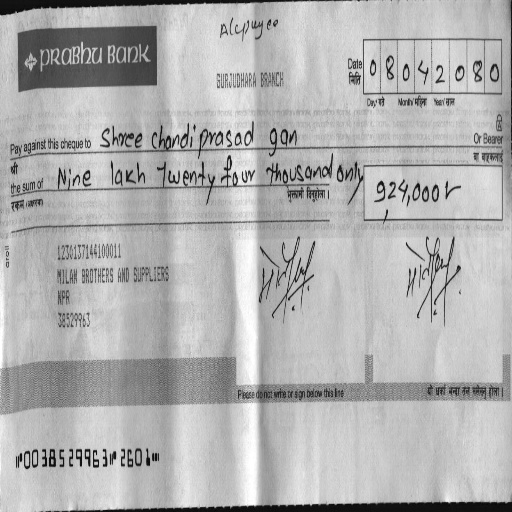 A/c payee
PRABHU BANK
GURJUDHARA BRANCH
Date 08042080
मिति
Day/गते Month/महिना Year/साल
Pay against this cheque to Shree Chandi prasad gan Or Bearer
श्री वा वाहकलाई
the sum of Nine lakh Twenty four thousand only
रकम (अक्षरमा) भुक्तानी दिनुहोला।
924,000/-
1230137144100011
MILAN BROTHERS AND SUPPLIERS
NPR
38529963
Please do not write or sign below this line
⑈00385 29963⑈ 2601⑈